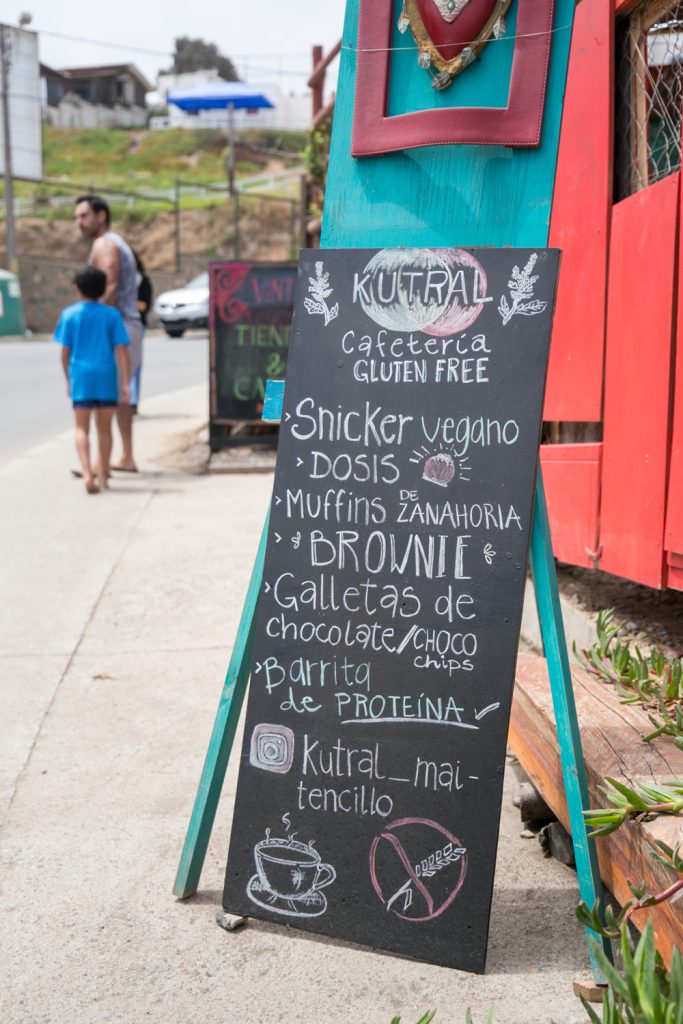 KUTRAL
Cafetería
GLUTEN FREE
> Snicker vegano
> DOSIS
> Muffins DE ZANAHORIA
> BROWNIE
> Galletas de
chocolate//CHOCO
chips
> Barrita
de PROTEÍNA ✓
Kutral_mai-
tencillo
TIEN
&
CA